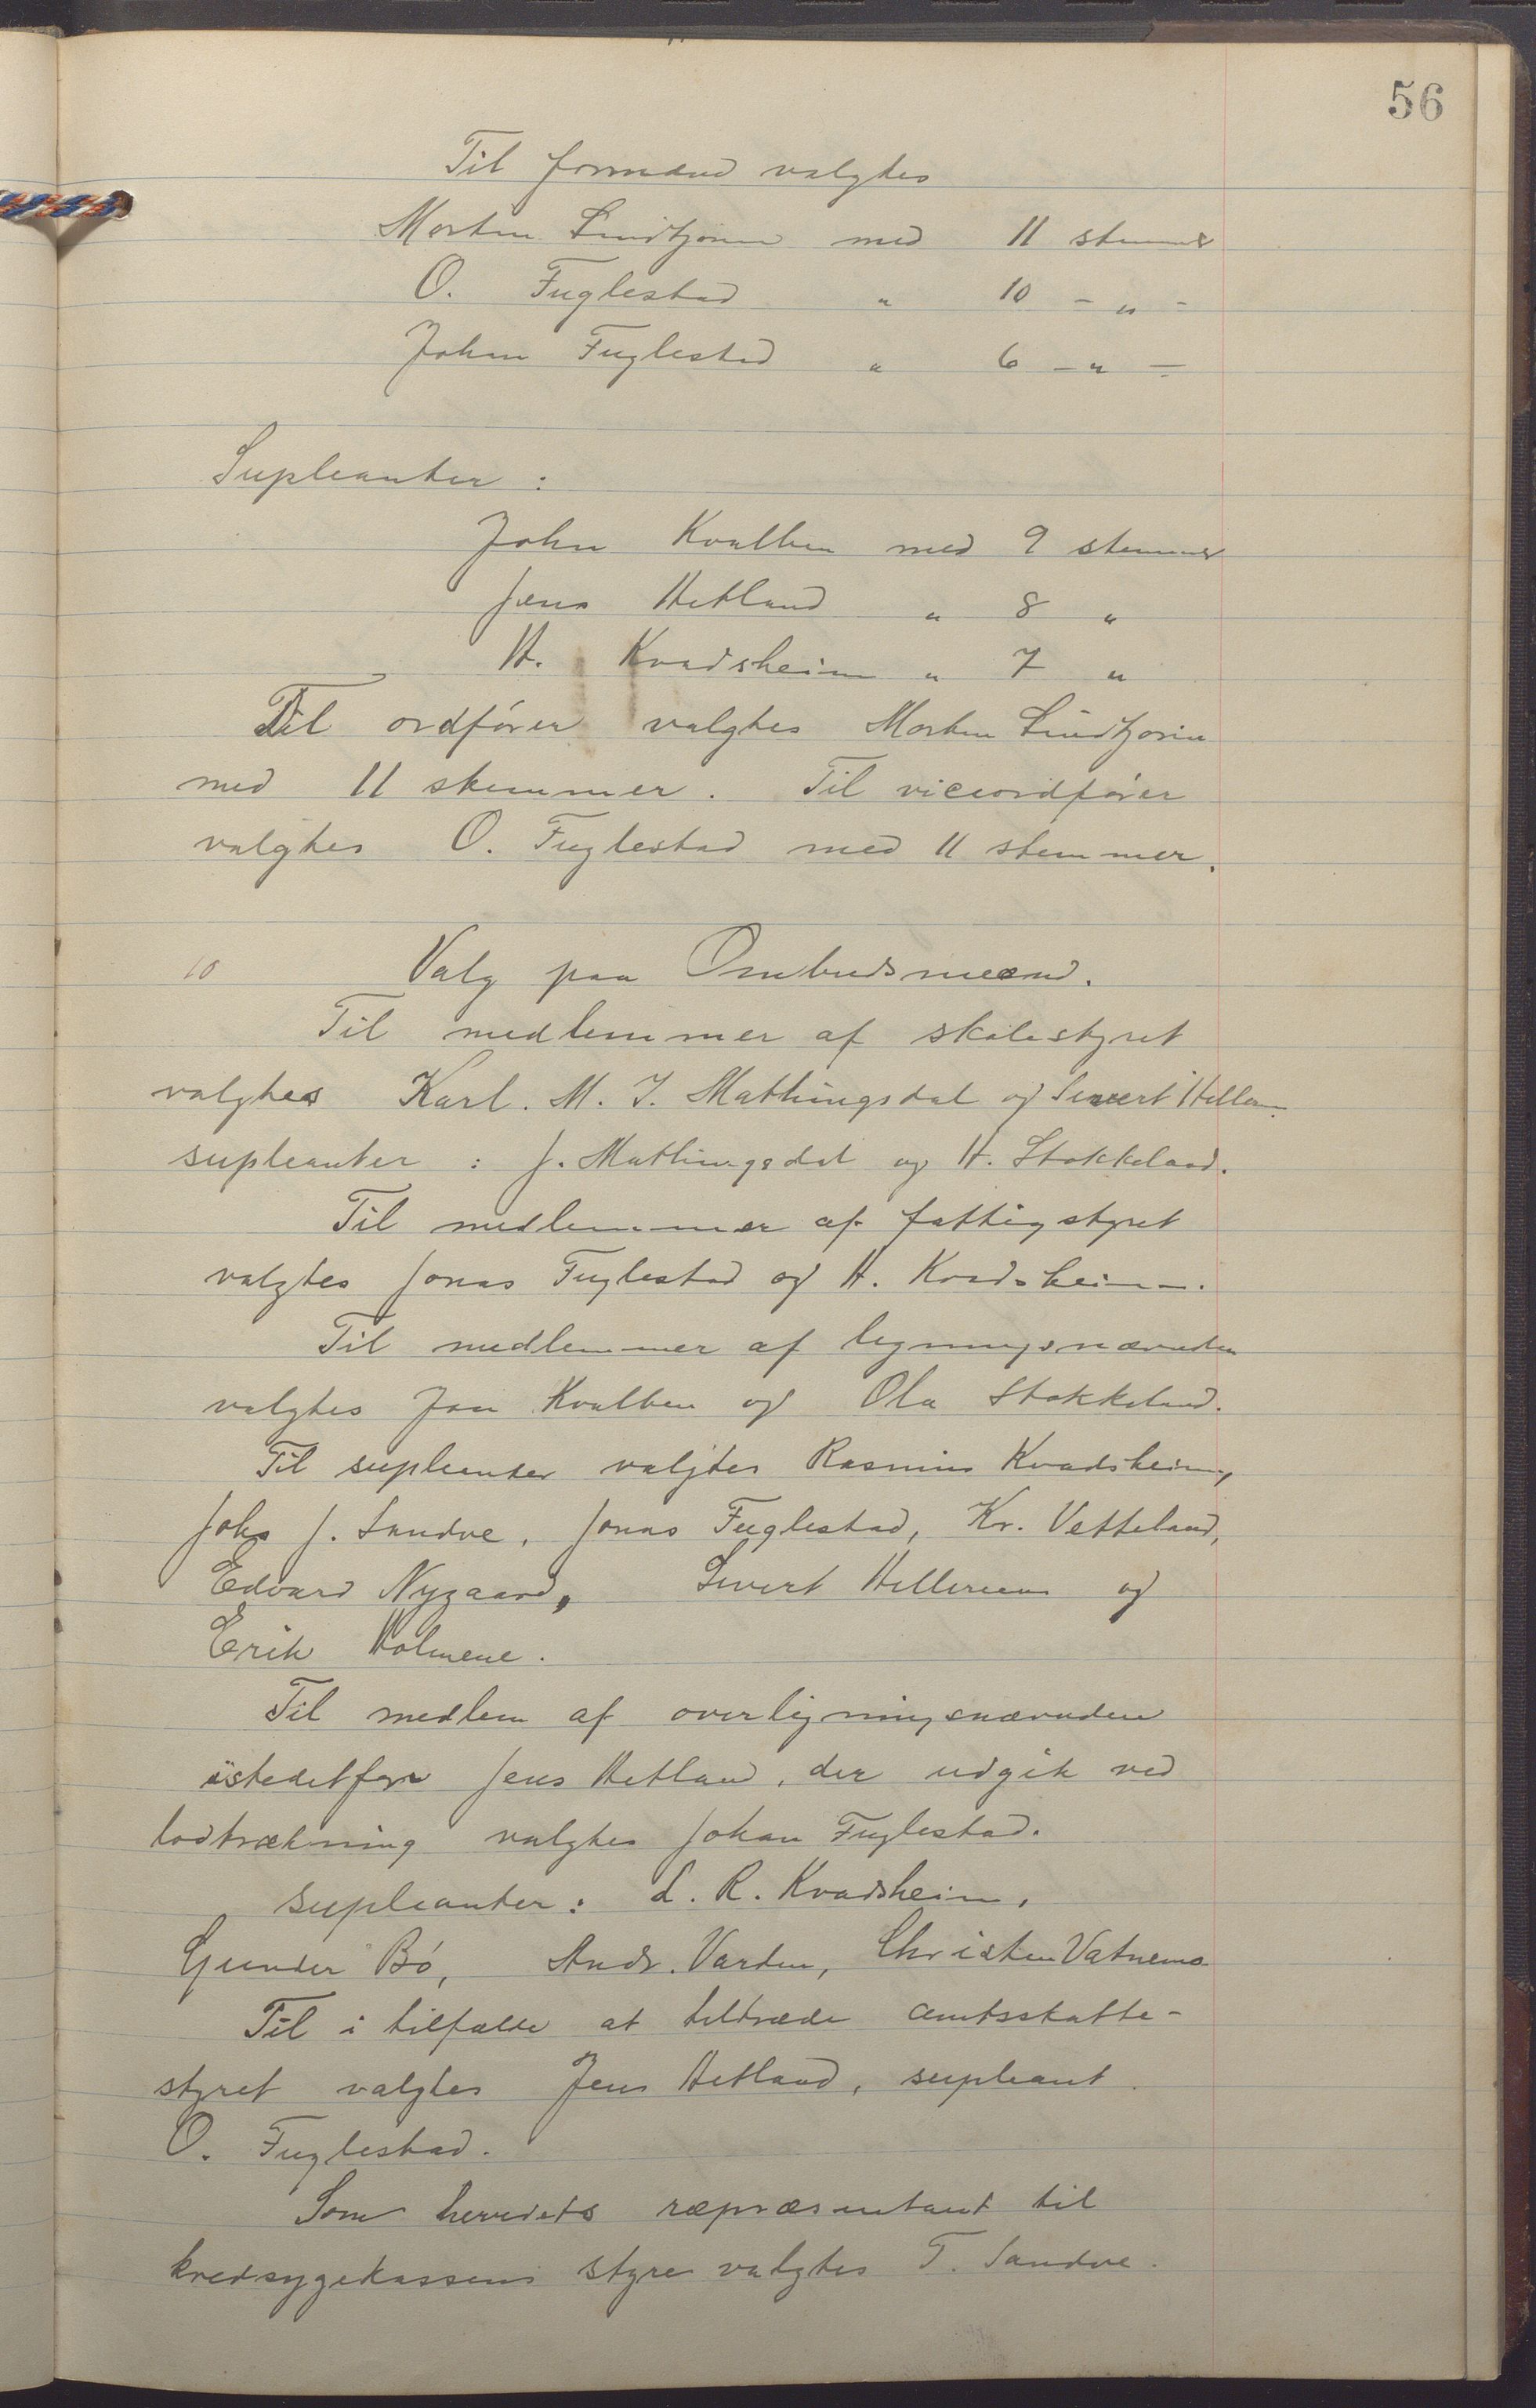 56
Til formænd valgtes
Morten Lindtjørn med 11 stemmer
O. Fuglestad " 10 - " -
Johan Fuglestad " 6 - " -
Supleanter :
John Kvalben med 9 stemmer
Jens Hetland " 8 "
H. Kvadsheim " 7 "
Til ordfører valgtes Morten Lindtjørn
med 11 stemmer. Til viceordfører
valgtes O. Fuglestad med 11 stemmer.
10 Valg paa Ombudsmænd.
Til medlemmer af skolestyret
valgtes Karl. M. I. Mathingsdal og Sivert Helleren.
supleanter : J. Mathingsdal og H. Stokkeland.
Til medlemmer af fattigstyret
valgtes Jonas Fuglestad og H. Kvadsheim.
Til medlemmer af ligningsnævnden
valgtes Jon Kvalben og Ola Stokkeland.
Til supleanter valgtes Rasmus Kvadsheim,
Johs J. Sandve, Jonas Fuglestad, Kr. Vetteland,
Edvard Nygaard, Sivert Helleren og
Erik Holmene.
Til medlem af overligningsnævnden
istedetfor Jens Hetland, der udgik ved
lodtrækning valgtes Johan Fuglestad.
supleanter: L. R. Kvadsheim,
Gunder Bø, Andr. Varden, Christen Vatnemo
Til i tilfælde at tiltræde amtsskatte-
styret valgtes Jens Hetland, supleant
O. Fuglestad.
Som herredets repræsentant til
kredsygekassens styre valgtes T. Sandve.